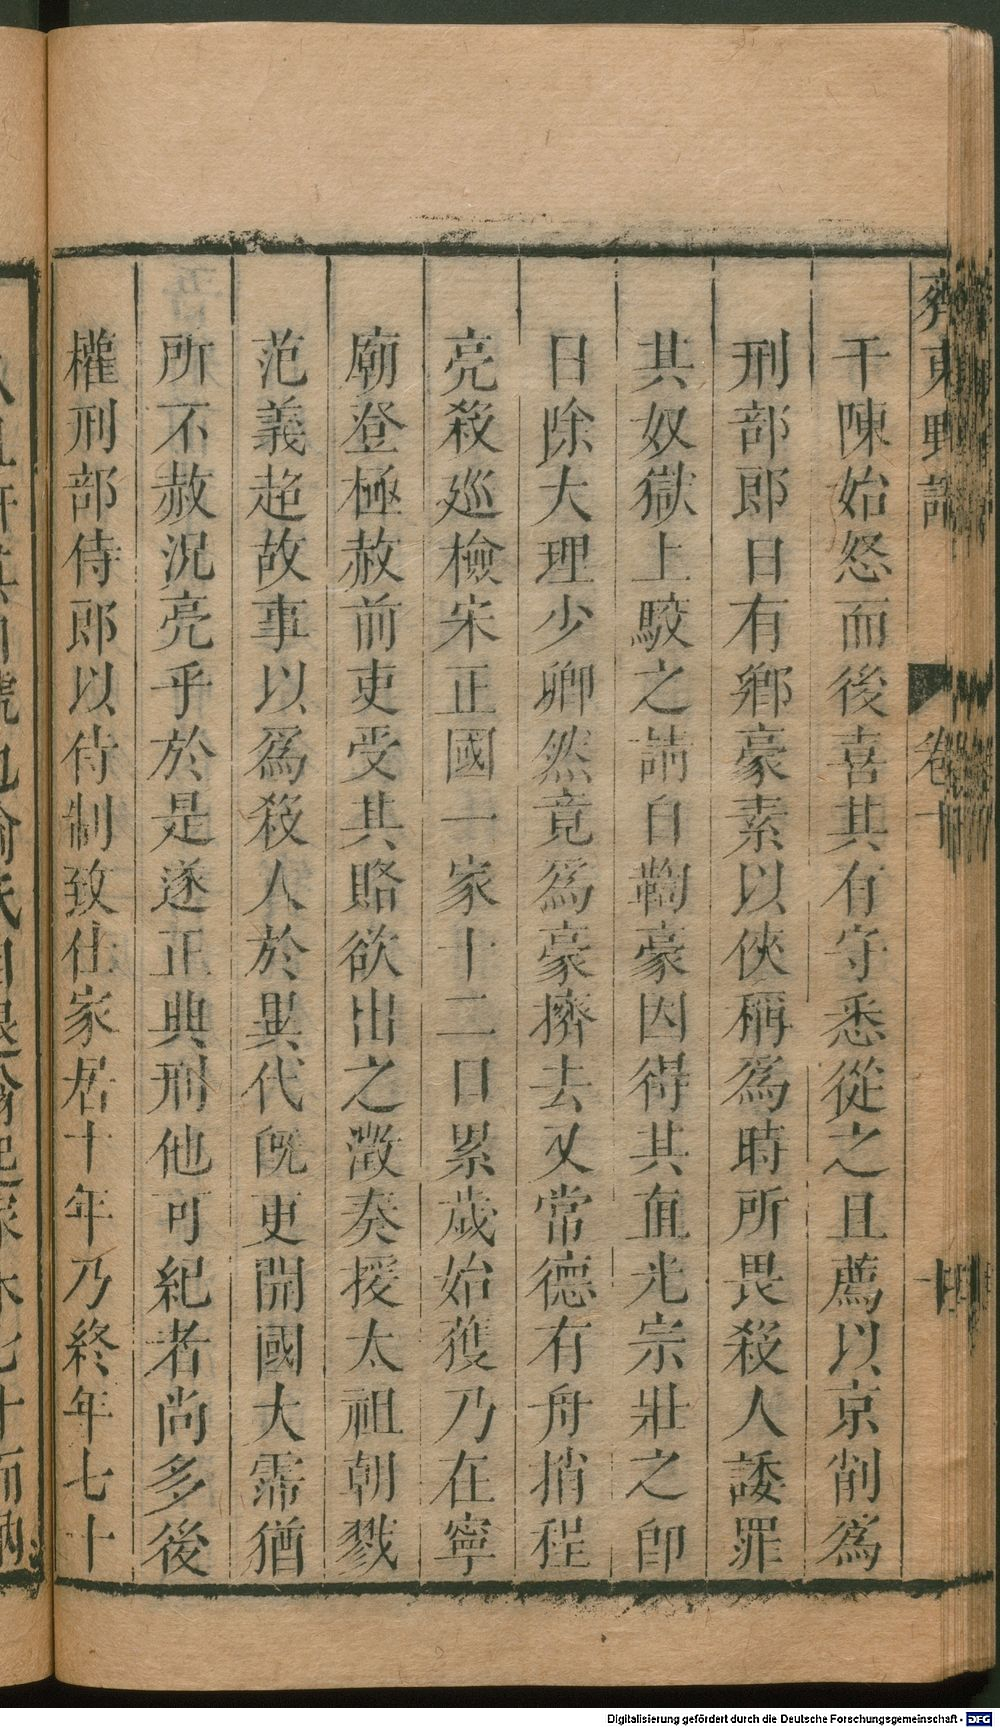 齊東野語
卷十
干陳始怒而後喜其有守悉從之且薦以京削爲
刑部郎日有鄉豪素以俠稱爲時所畏殺人諉罪
其奴獄上駮之請自鞫豪因得其直光宗壯之卽
日除大理少卿然竟爲豪擠去又常德有舟捎程
亮殺巡檢宋正國一家十二口累歲始獲乃在寧
廟登極赦前吏受其賂欲出之澂奏援太祖朝戮
范義超故事以爲殺人於異代旣更開國大霈猶
所不赦況亮乎於是遂正典刑他可紀者尚多後
權刑部侍郎以侍制致仕家居十年乃終年七十
Digitalisierung gefördert durch die Deutsche Forschungsgemeinschaft - DFG